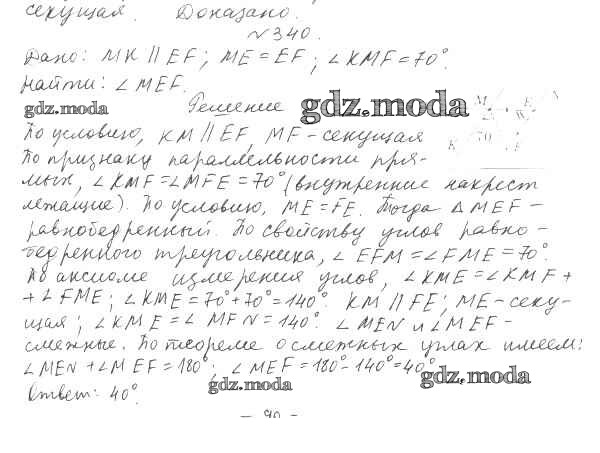 секущая. Доказано.
№340.
Дано: MK || EF; ME = EF; ∠KMF = 70°.
Найти: ∠MEF.
gdz.moda Решение gdz.moda
По условию, KM || EF, MF - секущая
По признаку параллельности пря-
мых, ∠KMF = ∠MFE = 70° (внутренние накрест
лежащие). По условию, ME = FE. Тогда △MEF -
равнобедренный. По свойству углов равно-
бедренного треугольника, ∠EFM = ∠FME = 70°.
По аксиоме измерения углов, ∠KME = ∠KMF +
+ ∠FME; ∠KME = 70° + 70° = 140°. KM || FE; ME - секу-
щая; ∠KME = ∠MFN = 140°. ∠MEN и ∠MEF -
смежные. По теореме о смежных углах имеем:
∠MEN + ∠MEF = 180°; ∠MEF = 180° - 140° = 40°
gdz.moda gdz.moda
Ответ: 40°.
- 90 -